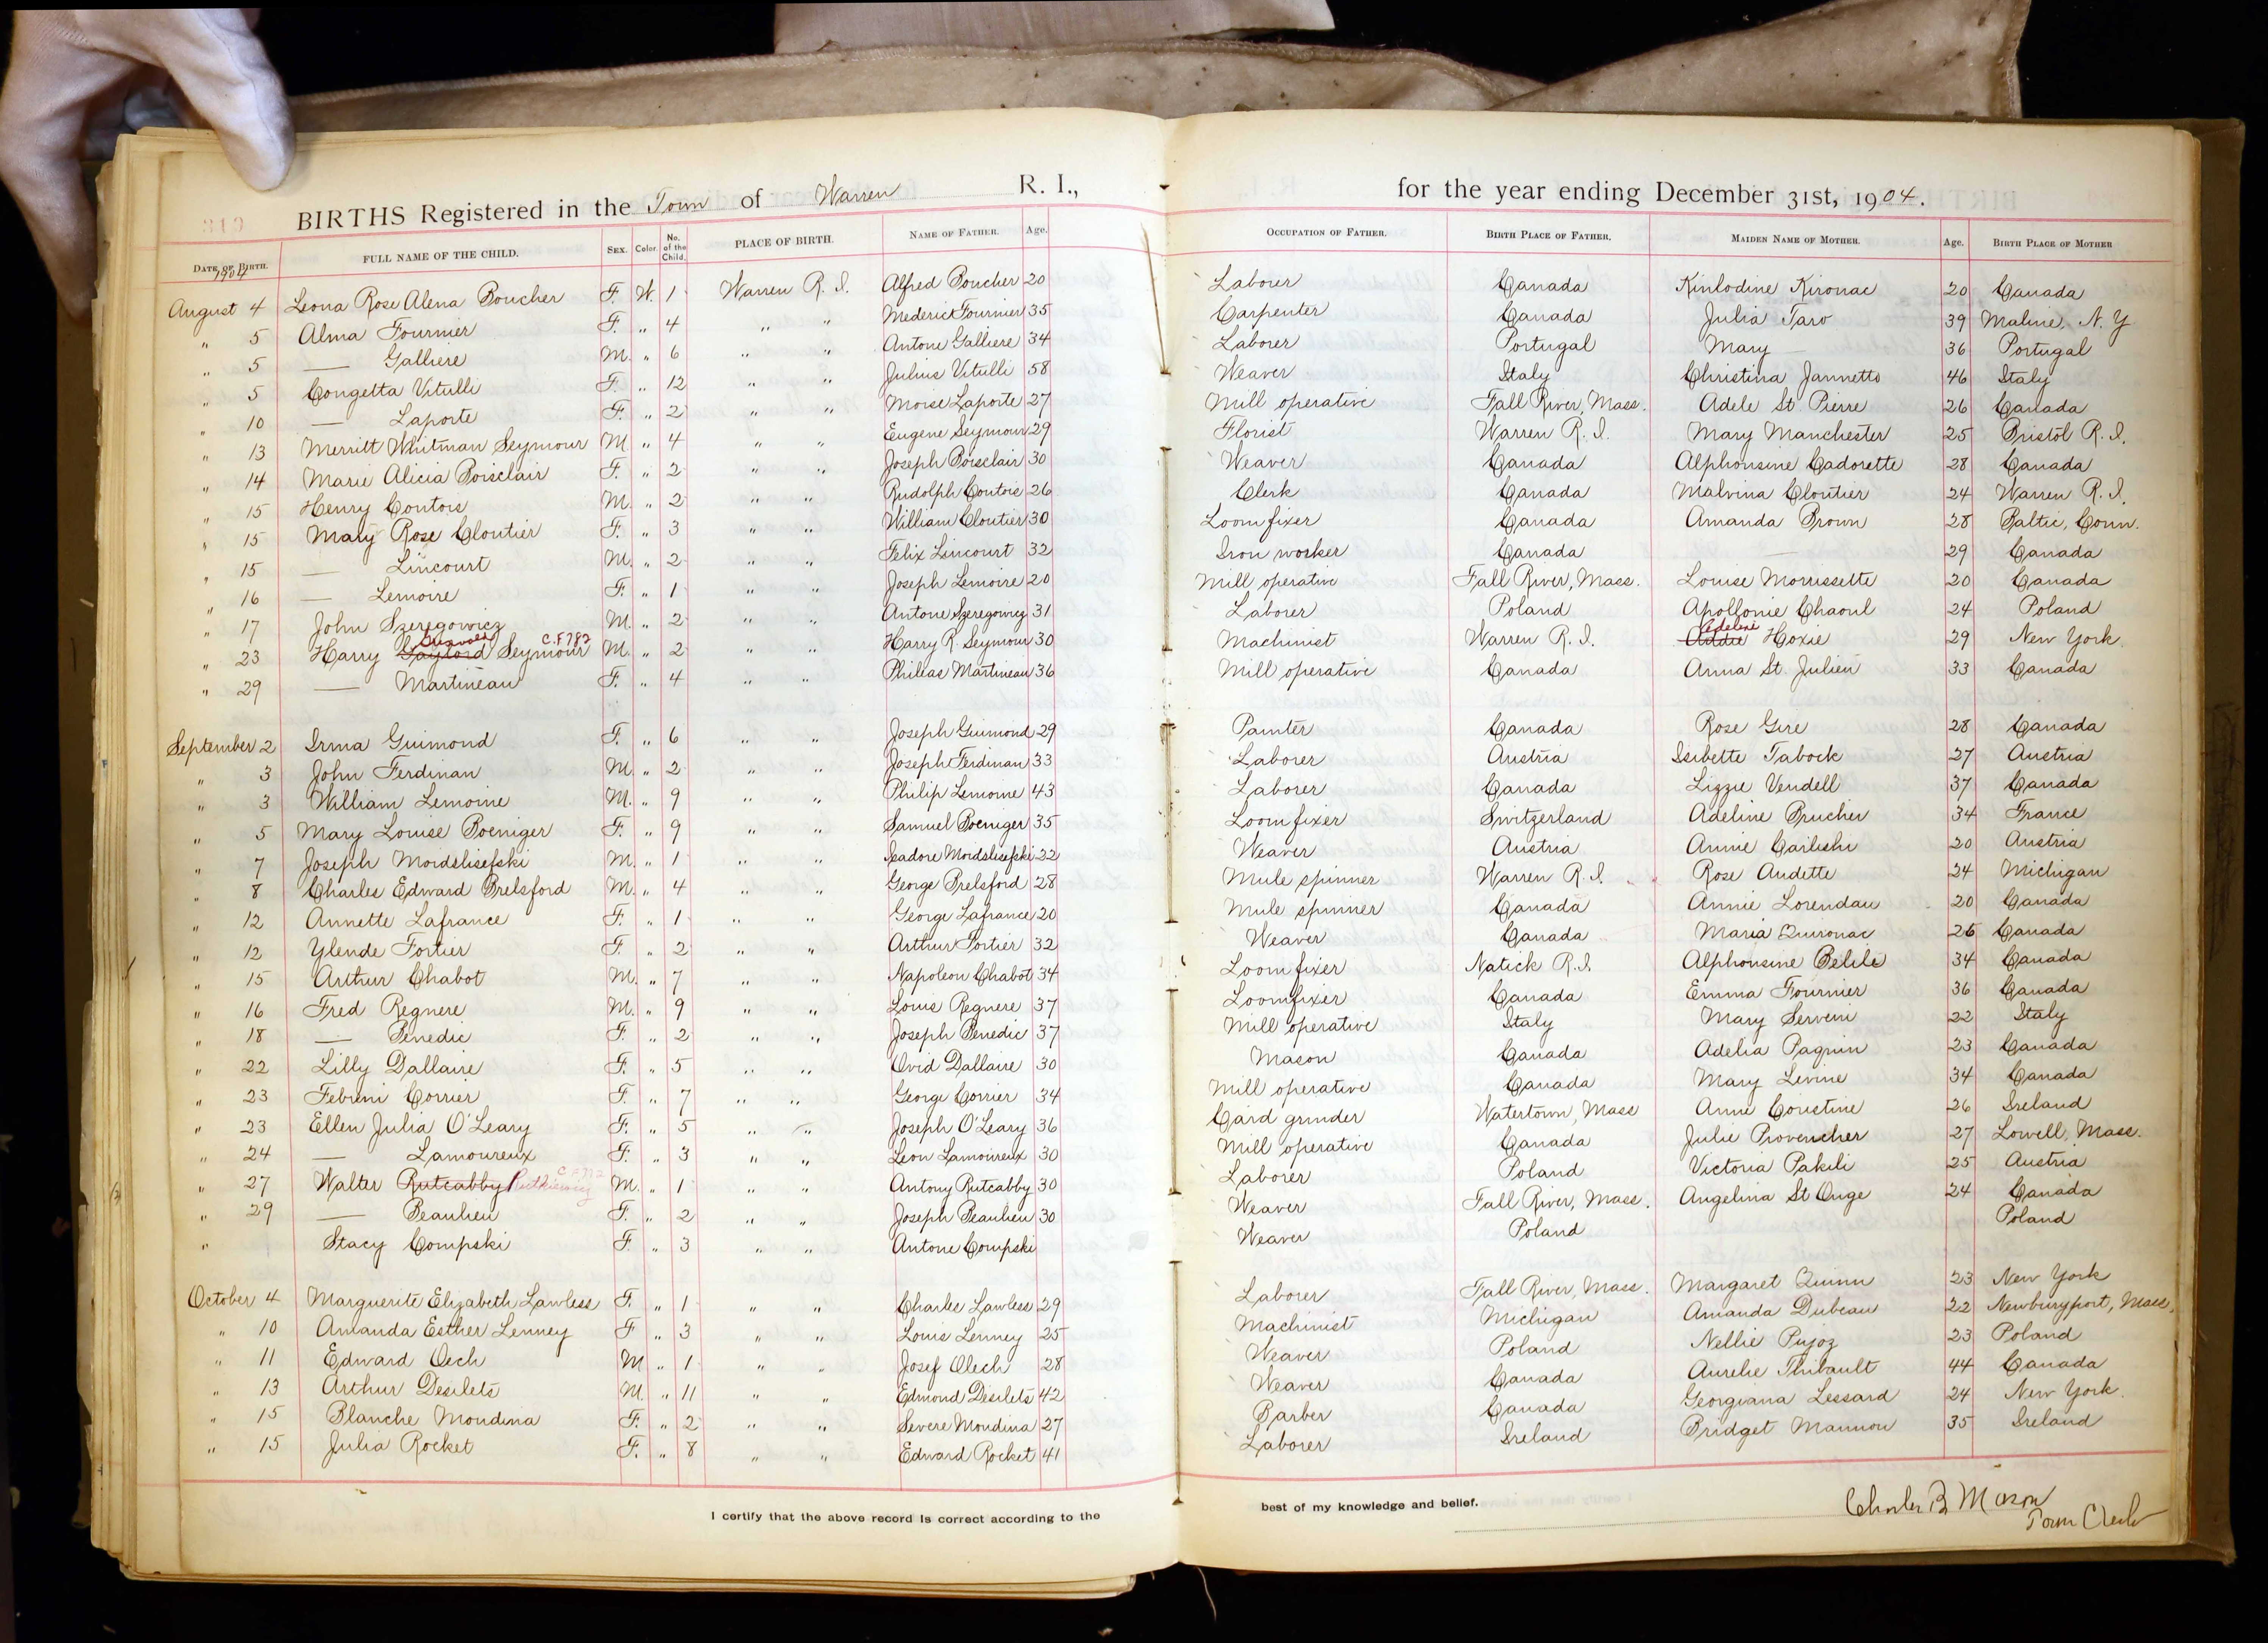 BIRTHS Registered in the Town of Warren R. I., for the year ending December 31st, 1904.
DATE OF BIRTH. FULL NAME OF THE CHILD. SEX. Color. No. of the Child. PLACE OF BIRTH. NAME OF FATHER. Age. OCCUPATION OF FATHER. BIRTH PLACE OF FATHER. MAIDEN NAME OF MOTHER. Age. BIRTH PLACE OF MOTHER
1904
August 4 Leona Rose Alena Boucher F. W. 1 Warren R. I. Alfred Boucher 20 Laborer Canada Kinlodine Kironac 20 Canada
" 5 Alma Fournier F. " 4 " " Mederick Fournier 35 Carpenter Canada Julia Taro 39 Maline, N. Y
" 5 — Galliere M. " 6 " " Antone Galliere 34 Laborer Portugal Mary — 36 Portugal
" 5 Congetta Vitulli F. " 12 " " Julius Vitulli 58 Weaver Italy Christina Jannetto 46 Italy
" 10 — Laporte F. " 2 " " Moise Laporte 27 Mill operative Fall River, Mass. Adele St. Pierre 26 Canada
" 13 Merritt Whitman Seymour M. " 4 " " Eugene Seymour 29 Florist Warren R. I. Mary Manchester 25 Bristol R. I.
" 14 Marie Alicia Boisclair F. " 2 " " Joseph Boisclair 30 Weaver Canada Alphonsine Cadorette 28 Canada
" 15 Henry Contois M. " 2 " " Rudolph Contois 26 Clerk Canada Malvina Cloutier 24 Warren R. I.
" 15 Mary Rose Cloutier F. " 3 " " William Cloutier 30 Loom fixer Canada Amanda Brown 28 Baltic, Conn.
" 15 — Lincourt M. " 2 " " Felix Lincourt 32 Iron worker Canada — 29 Canada
" 16 — Lemoire F. " 1 " " Joseph Lemoire 20 Mill operative Fall River, Mass. Louise Morrissette 20 Canada
" 17 John Szeregowicz M. " 2 " " Antone Szeregowicz 31 Laborer Poland Apollonie Chaoul 24 Poland
" 23 Harry Gaylord Griswold Seymour C.F782 M. " 2 " " Harry R. Seymour 30 Machinist Warren R. I. Addie Adelene Hoxie 29 New York
" 29 — Martineau F. " 4 " " Phileas Martineau 36 Mill operative Canada Anna St. Julien 33 Canada
September 2 Irma Guimond F. " 6 " " Joseph Guimond 29 Painter Canada Rose Gire 28 Canada
" 3 John Ferdinan M. " 2 " " Joseph Ferdinan 33 Laborer Austria Isibette Tabock 27 Austria
" 3 William Lemoine M. " 9 " " Philip Lemoine 43 Laborer Canada Lizzie Vendell 37 Canada
" 5 Mary Louise Boeniger F. " 9 " " Samuel Boeniger 35 Loom fixer Switzerland Adeline Brucher 34 France
" 7 Joseph Moidslisefski M. " 1 " " Isadore Moidslisefski 22 Weaver Austria Annie Cailishi 20 Austria
" 8 Charles Edward Brelsford M. " 4 " " George Brelsford 28 Mule spinner Warren R. I. Rose Audette 24 Michigan
" 12 Annette Lafrance F. " 1 " " George Lafrance 20 Mule spinner Canada Annie Lorendau 20 Canada
" 12 Ylende Fortier F. " 2 " " Arthur Fortier 32 Weaver Canada Maria Quironac 26 Canada
" 15 Arthur Chabot M. " 7 " " Napoleon Chabot 34 Loom fixer Natick R.I. Alphonsine Belile 34 Canada
" 16 Fred Regnere M. " 9 " " Louis Regnere 37 Loomfixer Canada Emma Fournier 36 Canada
" 18 — Benedic F. " 2 " " Joseph Benedic 37 Mill operative Italy Mary Serveni 22 Italy
" 22 Lilly Dallaire F. " 5 " " Ovid Dallaire 30 Mason Canada Adelia Paquin 23 Canada
" 23 Febrini Corrier F. " 7 " " George Corrier 34 Mill operative Canada Mary Levine 34 Canada
" 23 Ellen Julia O'Leary F. " 5 " " Joseph O'Leary 36 Card grinder Watertown, Mass Anne Coustine 26 Ireland
" 24 — Lamoureux F. " 3 " " Leon Lamoureux 30 Mill operative Canada Julie Provencher 27 Lowell, Mass.
" 27 Walter Rutcabby Rutkiewicz M. " 1 " " Antony Rutcabby 30 Laborer Poland Victoria Pakili 25 Austria
" 29 — Beaulieu F. " 2 " " Joseph Beaulieu 30 Weaver Fall River, Mass. Angelina St Onge 24 Canada
" Stacy Compski F. " 3 " " Antone Compski Weaver Poland Poland
October 4 Marguerite Elizabeth Lawless F. " 1 " " Charles Lawless 29 Laborer Fall River, Mass. Margaret Quinn 23 New York
" 10 Amanda Esther Lenney F " 3 " " Louis Lenney 25 Machinist Michigan Amanda Dubeau 22 Newburyport, Mass.
" 11 Edward Oech M " 1 " " Josef Olech 28 Weaver Poland Nellie Pujoz 23 Poland
" 13 Arthur Desilets M. " 11 " " Edmond Desilets 42 Weaver Canada Aurelie Thibault 44 Canada
" 15 Blanche Mondina F. " 2 " " Severe Mondina 27 Barber Canada Georgiana Lessard 24 New York.
" 15 Julia Rocket F. " 8 " " Edward Rocket 41 Laborer Ireland Bridget Mannon 35 Ireland
I certify that the above record is correct according to the best of my knowledge and belief.
Charles B Mason
Town Clerk